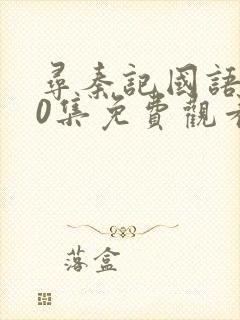 尋秦記國語
0集免費觀
落盒